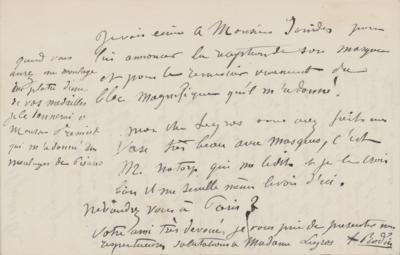 Je vais écrire à Monsieur Ionides pour
lui annoncer la réception de son masque
et pour le remercier vivement du
bloc magnifique qu'il m'a donné.
mon cher Legros vous avez fait un
vase très beau avec masques, c'est
M. Natorp qui me le dit et je le crois
Son il me semble même le voir d'ici.
Reviendrez vous à Paris ?
Votre ami très dévoué, je vous prie de présenter mes
respectueuses salutations à Madame Legros Rodin
quand vous
aurez un moulage
en plâtre d'une
de vos médailles
je le donnerai à
Monsieur
qui m'a donné
moulages de Pisano